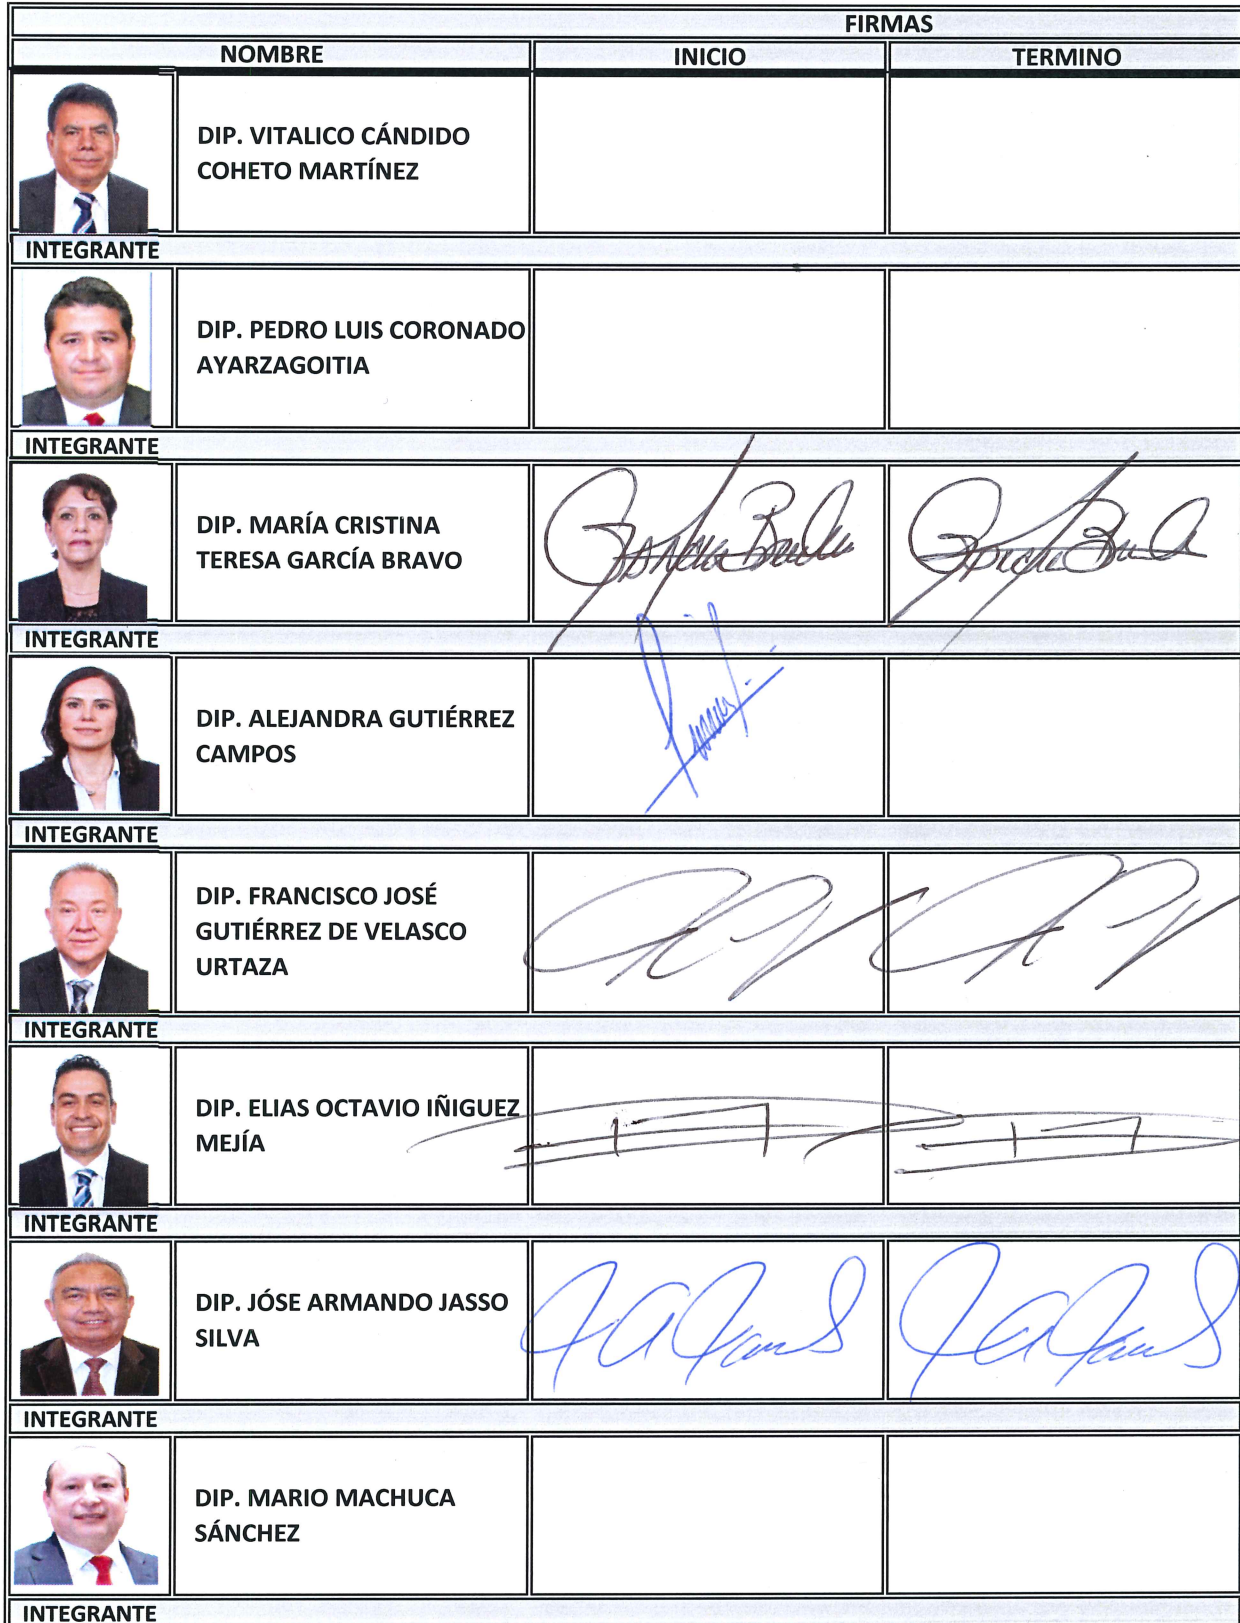 FIRMAS
NOMBRE INICIO TERMINO
DIP. VITALICO CÁNDIDO
COHETO MARTÍNEZ
INTEGRANTE
DIP. PEDRO LUIS CORONADO
AYARZAGOITIA
INTEGRANTE
DIP. MARÍA CRISTINA
TERESA GARCÍA BRAVO
INTEGRANTE
DIP. ALEJANDRA GUTIÉRREZ
CAMPOS
INTEGRANTE
DIP. FRANCISCO JOSÉ
GUTIÉRREZ DE VELASCO
URTAZA
INTEGRANTE
DIP. ELIAS OCTAVIO IÑIGUEZ
MEJÍA
INTEGRANTE
DIP. JÓSE ARMANDO JASSO
SILVA
INTEGRANTE
DIP. MARIO MACHUCA
SÁNCHEZ
INTEGRANTE